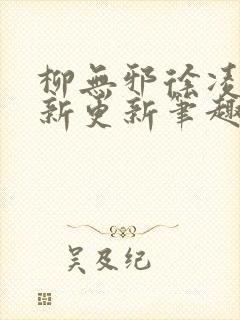 柳無邪徐凌
新更新筆趣
吴及纪